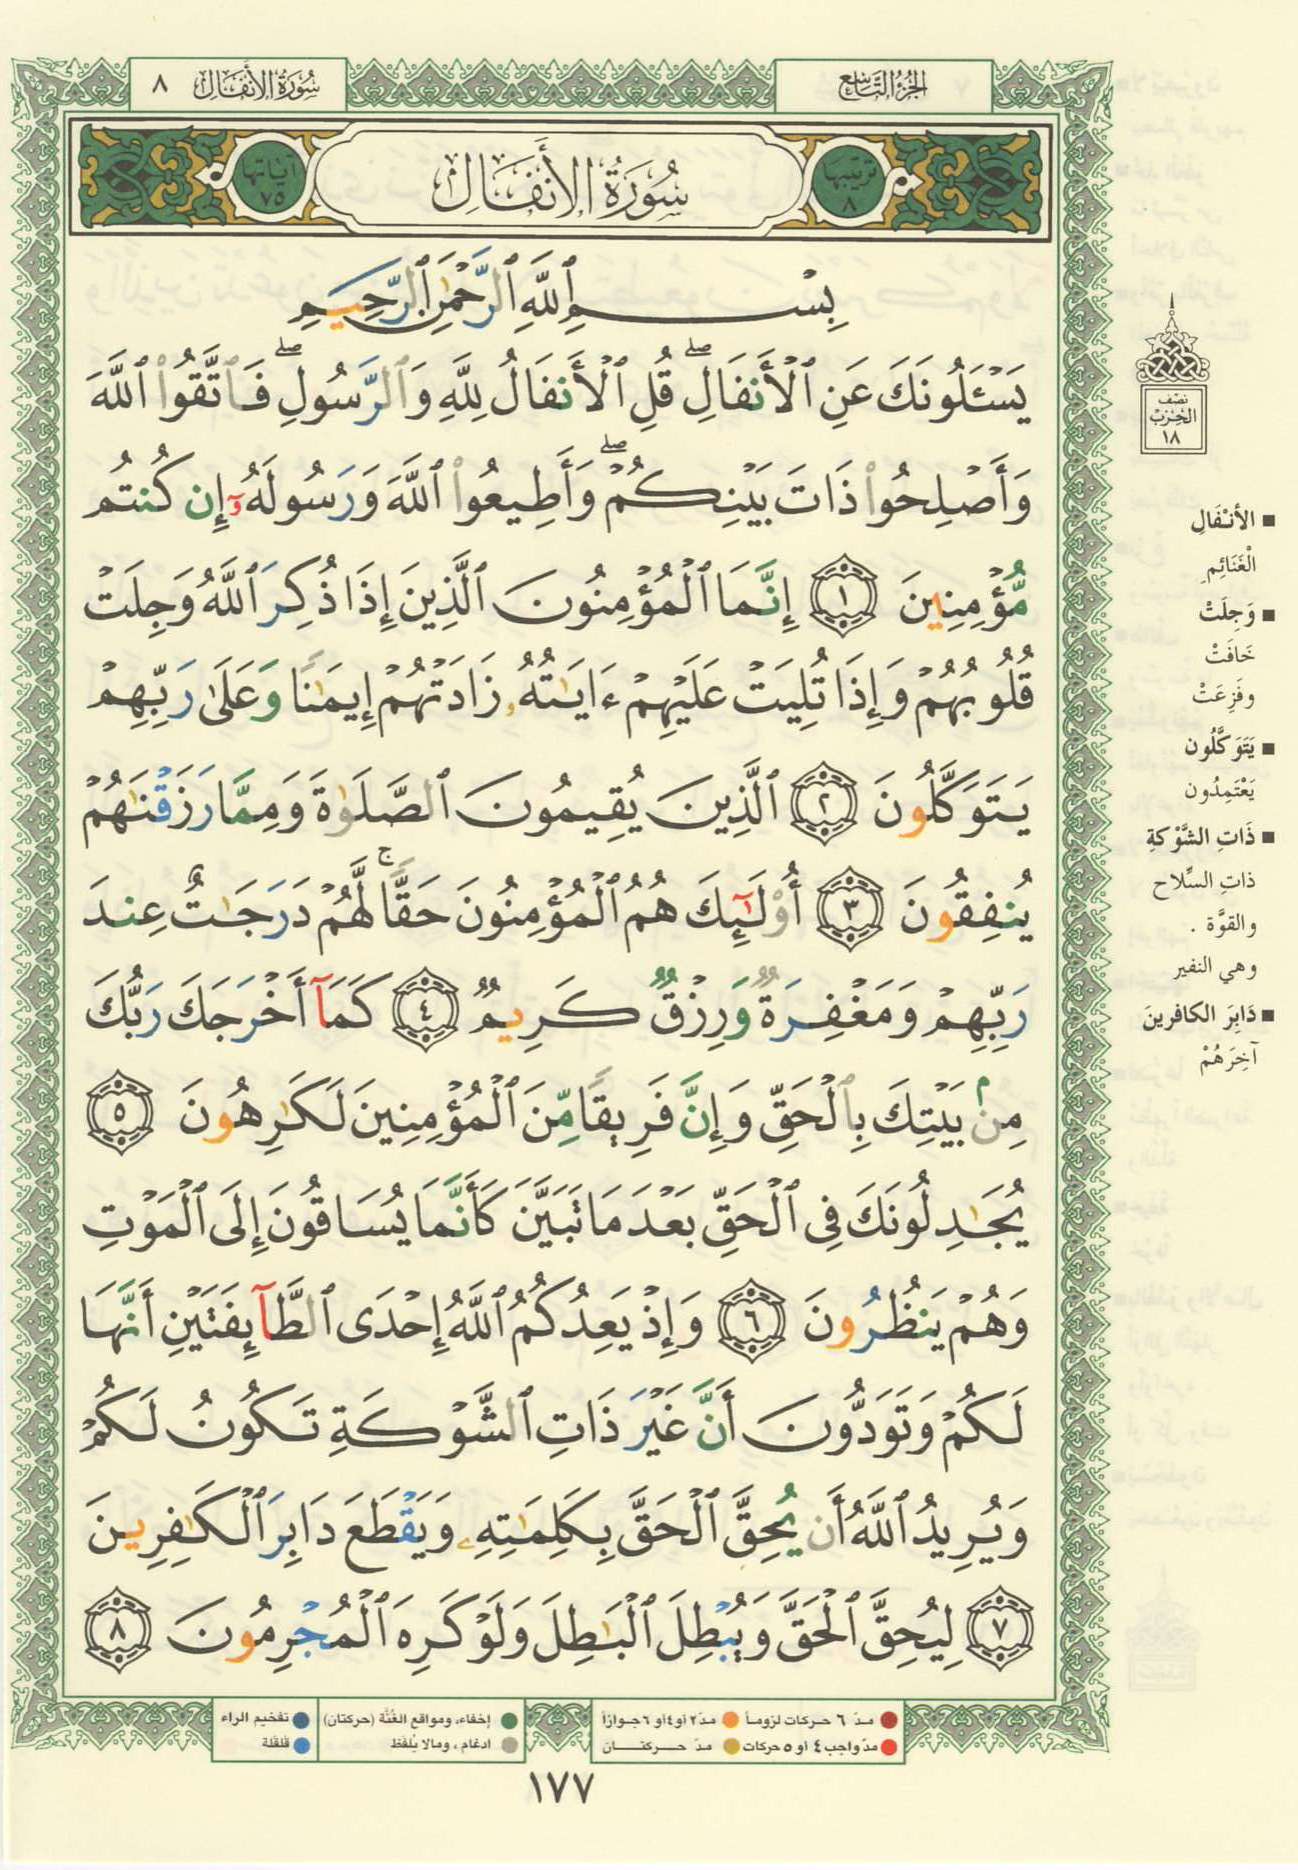 الجزء التاسع
سورة الأنفال ٨
ترتيبها ٨
سُورَةُ الأَنفَال
آياتها ٧٥
بِسْمِ ٱللَّهِ ٱلرَّحْمَٰنِ ٱلرَّحِيمِ
يَسْـَٔلُونَكَ عَنِ ٱلْأَنفَالِ ۖ قُلِ ٱلْأَنفَالُ لِلَّهِ وَٱلرَّسُولِ ۖ فَٱتَّقُوا۟ ٱللَّهَ
وَأَصْلِحُوا۟ ذَاتَ بَيْنِكُمْ ۖ وَأَطِيعُوا۟ ٱللَّهَ وَرَسُولَهُۥٓ إِن كُنتُم
مُّؤْمِنِينَ ١ إِنَّمَا ٱلْمُؤْمِنُونَ ٱلَّذِينَ إِذَا ذُكِرَ ٱللَّهُ وَجِلَتْ
قُلُوبُهُمْ وَإِذَا تُلِيَتْ عَلَيْهِمْ ءَايَٰتُهُۥ زَادَتْهُمْ إِيمَٰنًا وَعَلَىٰ رَبِّهِمْ
يَتَوَكَّلُونَ ٢ ٱلَّذِينَ يُقِيمُونَ ٱلصَّلَوٰةَ وَمِمَّا رَزَقْنَٰهُمْ
يُنفِقُونَ ٣ أُو۟لَٰٓئِكَ هُمُ ٱلْمُؤْمِنُونَ حَقًّا ۚ لَّهُمْ دَرَجَٰتٌ عِندَ
رَبِّهِمْ وَمَغْفِرَةٌ وَرِزْقٌ كَرِيمٌ ٤ كَمَآ أَخْرَجَكَ رَبُّكَ
مِنۢ بَيْتِكَ بِٱلْحَقِّ وَإِنَّ فَرِيقًا مِّنَ ٱلْمُؤْمِنِينَ لَكَٰرِهُونَ ٥
يُجَٰدِلُونَكَ فِى ٱلْحَقِّ بَعْدَ مَا تَبَيَّنَ كَأَنَّمَا يُسَاقُونَ إِلَى ٱلْمَوْتِ
وَهُمْ يَنظُرُونَ ٦ وَإِذْ يَعِدُكُمُ ٱللَّهُ إِحْدَى ٱلطَّآئِفَتَيْنِ أَنَّهَا
لَكُمْ وَتَوَدُّونَ أَنَّ غَيْرَ ذَاتِ ٱلشَّوْكَةِ تَكُونُ لَكُمْ
وَيُرِيدُ ٱللَّهُ أَن يُحِقَّ ٱلْحَقَّ بِكَلِمَٰتِهِۦ وَيَقْطَعَ دَابِرَ ٱلْكَٰفِرِينَ
٧ لِيُحِقَّ ٱلْحَقَّ وَيُبْطِلَ ٱلْبَٰطِلَ وَلَوْ كَرِهَ ٱلْمُجْرِمُونَ ٨
نصف
الحزب
١٨
■ الأَنْفَالِ
الْغَنَائِمِ
■ وَجِلَتْ
خَافَتْ
وفَزِعَتْ
■ يَتَوَكَّلُون
يَعْتَمِدُون
■ ذَاتِ الشَّوْكةِ
ذاتِ السِّلاح
والقوَّة .
وهي النفير
■ دَابِرَ الكافرينَ
آخِرَهُمْ
مدّ ٦ حركات لزوماً
مدّ ٢ أو ٤ أو ٦ جوازاً
إخفاء، ومواقع الغُنَّة (حركتان)
تفخيم الراء
مدّ واجب ٤ أو ٥ حركات
مدّ حركتان
ادغام، ومالا يُلفَظ
قلقلة
١٧٧